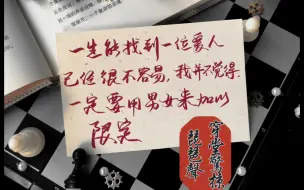 一生能找到一位爱人
已经很不容易,我并不觉得
一定要用男女来加以
限定
穿堂惊掠
琵琶声